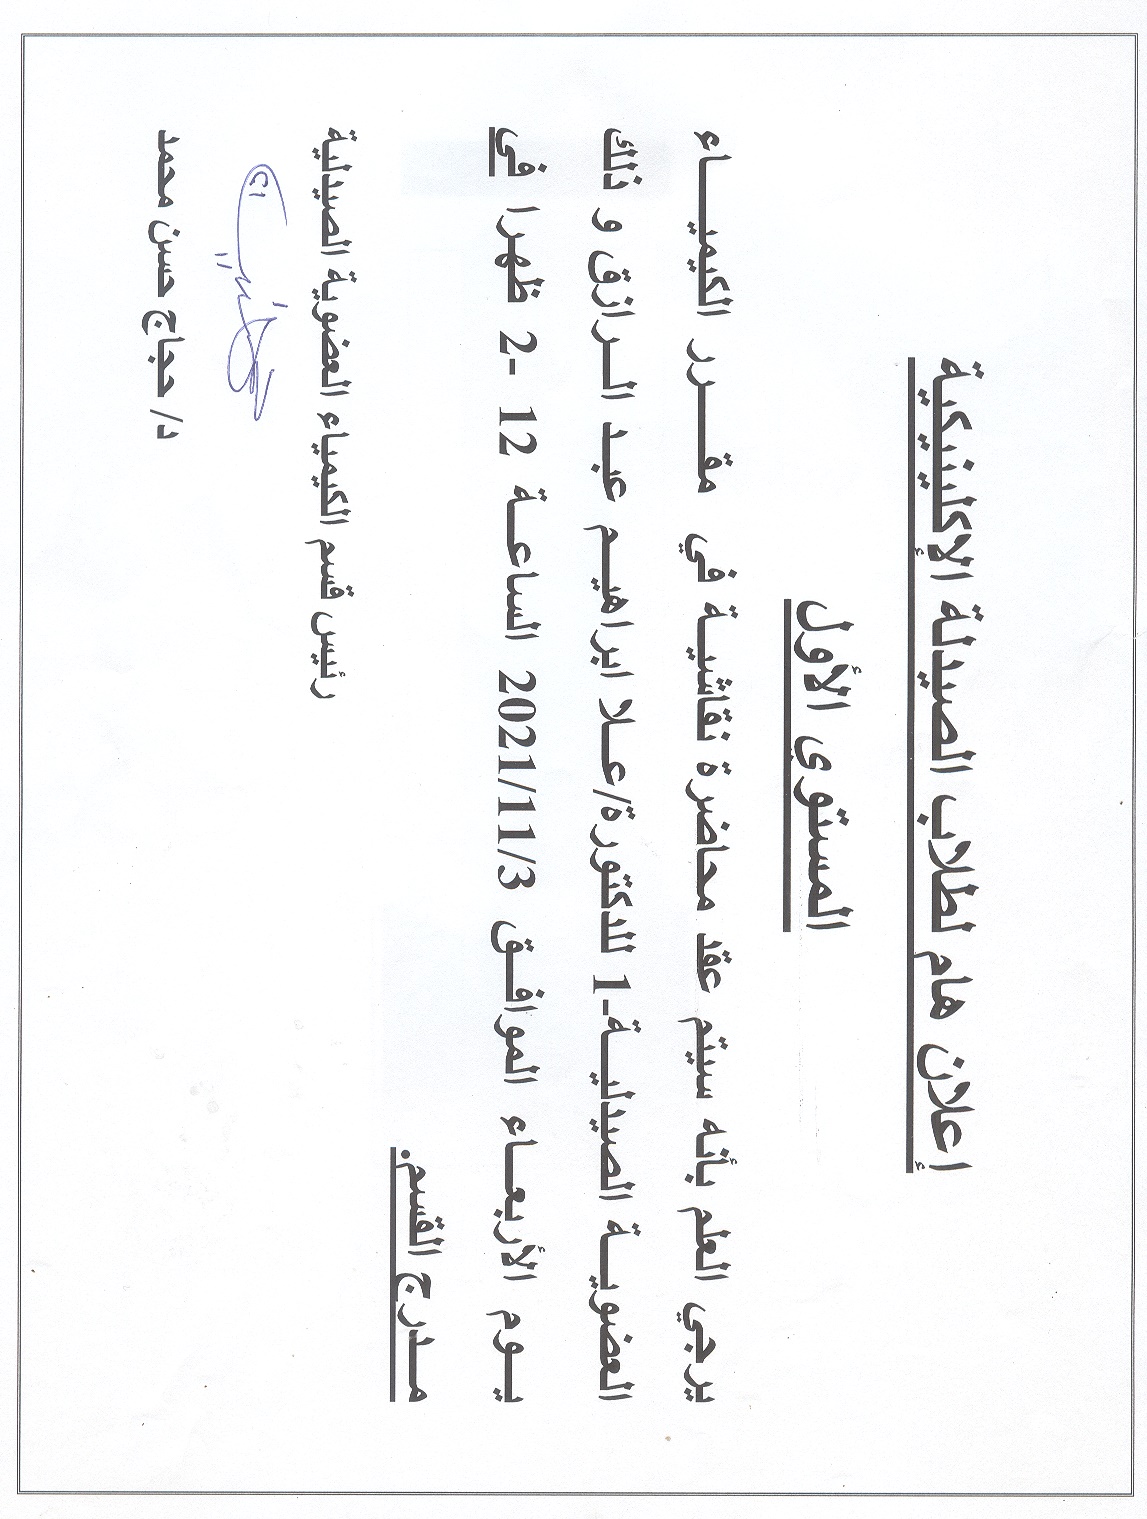 إعلان هام لطلاب الصيدلة الإكلينيكية
المستوي الأول
يرجي العلم بأنه سيتم عقد محاضرة نقاشية في مقرر الكيمياء
العضوية الصيدلية-1 للدكتورة/علا ابراهيم عبد الرازق و ذلك
يوم الأربعاء الموافق 2021/11/3 الساعة 12 -2 ظهرا في
مدرج القسم.
رئيس قسم الكيمياء العضوية الصيدلية
د/ حجاج حسن محمد